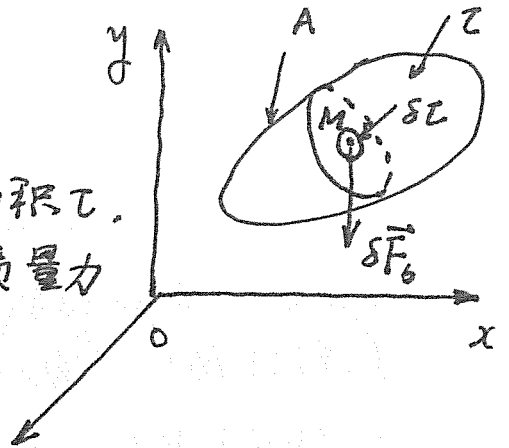 y
A
τ
M
δτ
积τ.
质量力
δF⃗b
o
x